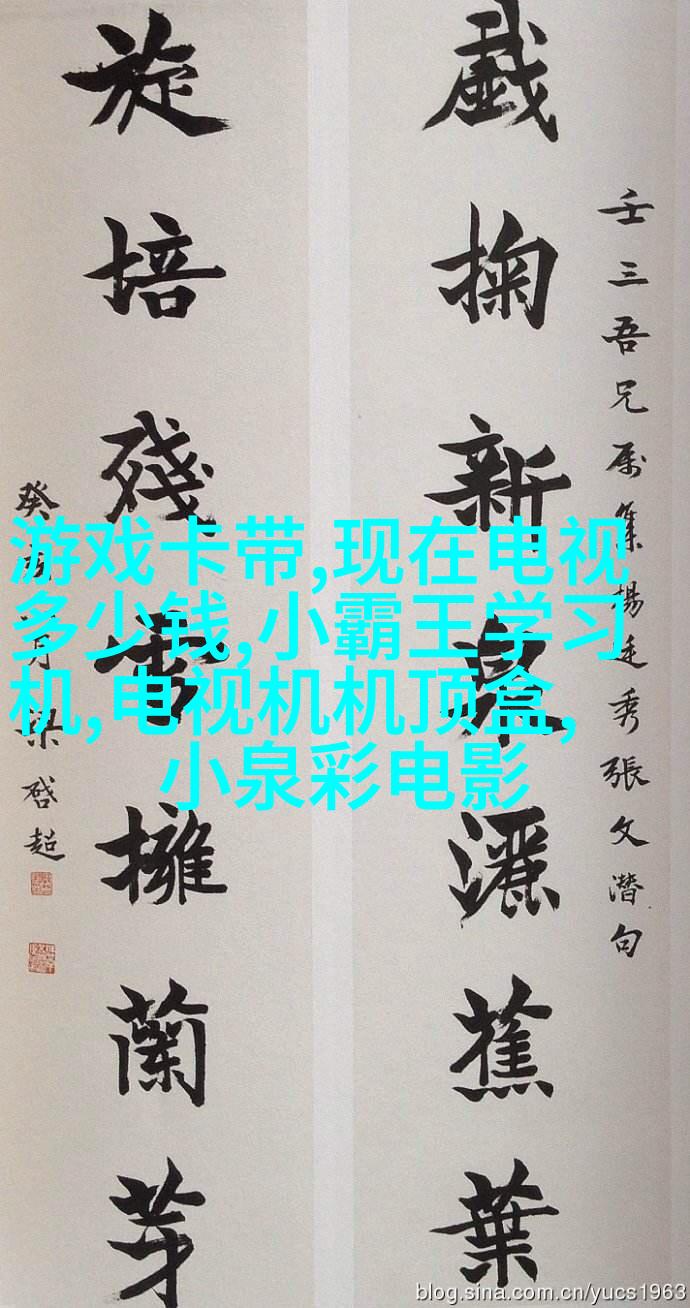 壬三吾兄属集楊廷秀張文潜句
戲掬新泉灑蕉葉
旋培殘雪擁蘭芽
癸月梁啓超
游戏卡带,现在电视
多少钱,小霸王学习
机,电视机机顶盒,
小泉彩电影
blog.sina.com.cn/yucs1963